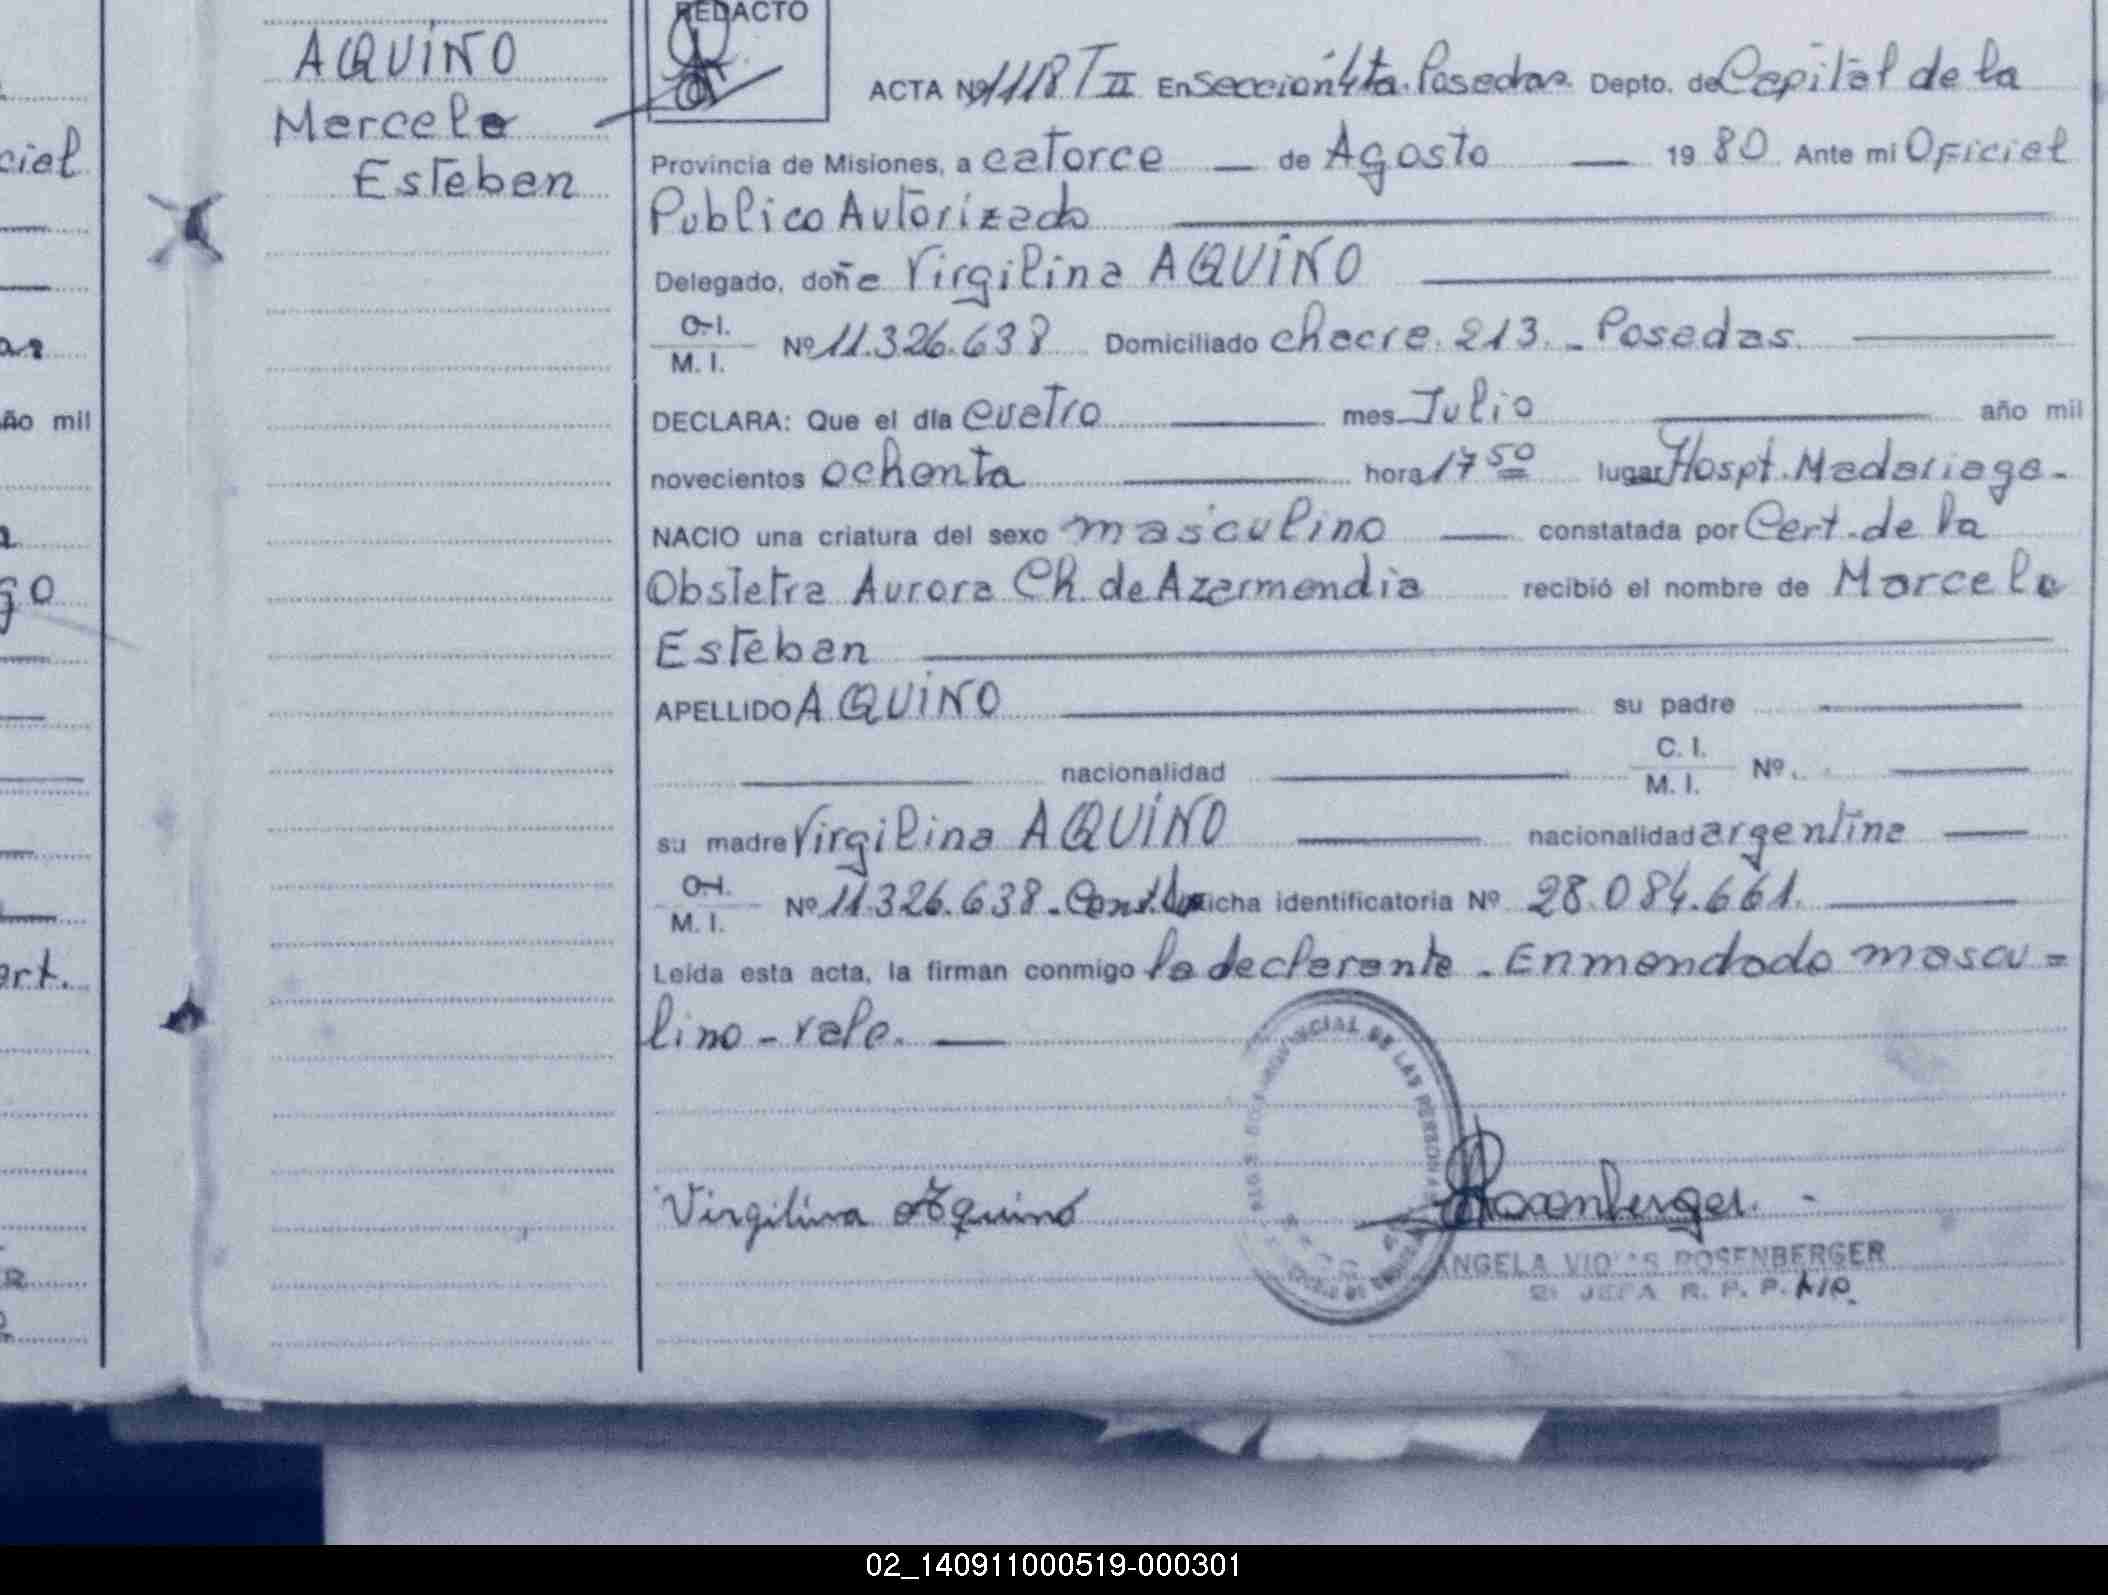 REDACTO
AQUINO
Marcelo
Esteban
ACTA Nº 1118 T II En Sección 4ta. Posadas Depto. de Capital de la
Provincia de Misiones, a catorce de Agosto 19 80 Ante mi Oficial
Publico Autorizado
Delegado, doña Virgilina AQUINO
C.I.
M. I. Nº 11.326.638 Domiciliado chacra 213 - Posadas.
DECLARA: Que el día cuatro mes Julio año mil
novecientos ochenta hora 17 50 lugar Hospt. Madariaga-
NACIO una criatura del sexo masculino constatada por Cert. de la
Obstetra Aurora Ch. de Azarmendia recibió el nombre de Marcelo
Esteban
APELLIDO AQUINO su padre
nacionalidad C. I.
M. I. Nº
su madre Virgilina AQUINO nacionalidad argentina
C.I.
M. I. Nº 11.326.638. ficha identificatoria Nº 28.084.661.
Leída esta acta, la firman conmigo la declarante. Enmendado mascu=
lino - vale.
Virgilina Aquino
Rosenberger
ANGELA ROSENBERGER
JEFA R. P. P.
cial
año mil
go
ert.
02_140911000519-000301